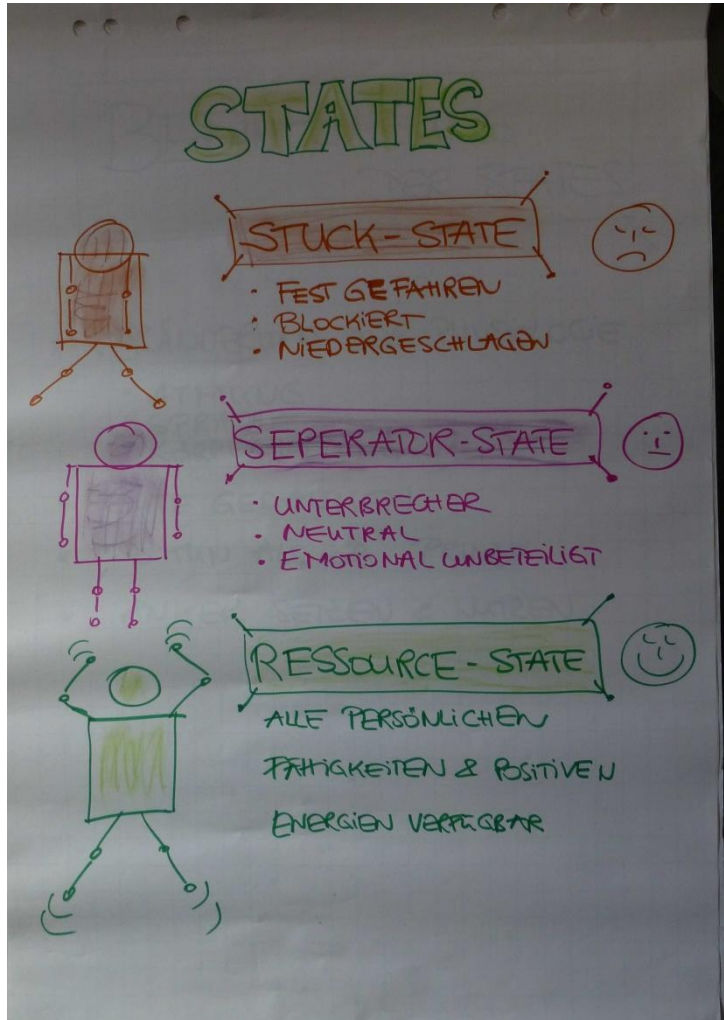 STATES
STUCK-STATE
· FEST GEFAHREN
· BLOCKIERT
· NIEDERGESCHLAGEN
SEPERATOR-STATE
· UNTERBRECHER
· NEUTRAL
· EMOTIONAL UNBETEILIGT
RESSOURCE-STATE
ALLE PERSÖNLICHEN
FÄHIGKEITEN & POSITIVEN
ENERGIEN VERFÜGBAR